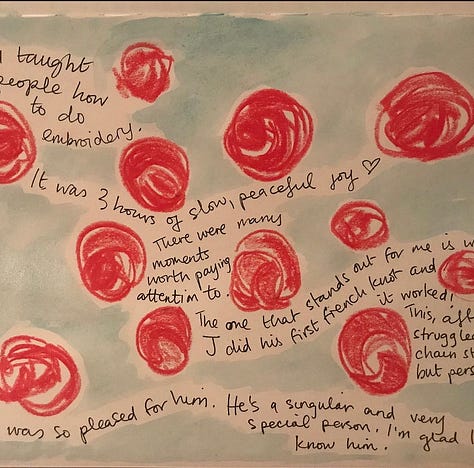 I taught
people how
to do
embroidery.
It was 3 hours of slow, peaceful joy ♡
There were many
moments
worth paying
attention to.
The one that stands out for me is w
J did his first french knot and
it worked!
This, aft
struggle
chain st
but pers
was so pleased for him. He's a singular and very
special person. I'm glad I
know him.